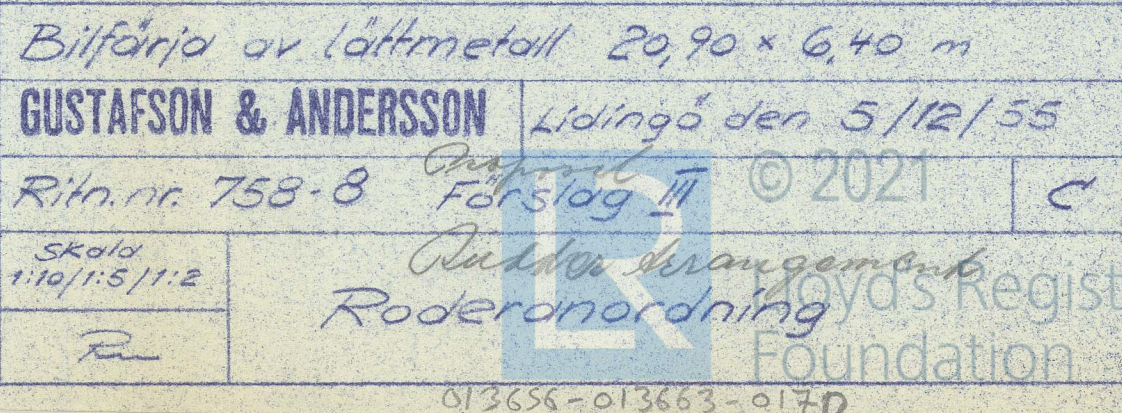 Bilfärja av lättmetall 20,90 × 6,40 m
GUSTAFSON & ANDERSSON Lidingö den 5/12/55
Proposal
Ritn.nr. 758-8 Förslag III C
© 2021
Skala
1:10/1:5/1:2
Rudder Arrangement
Roderanordning
LR
Lloyd's Regist
Foundation
013656-013663-017D